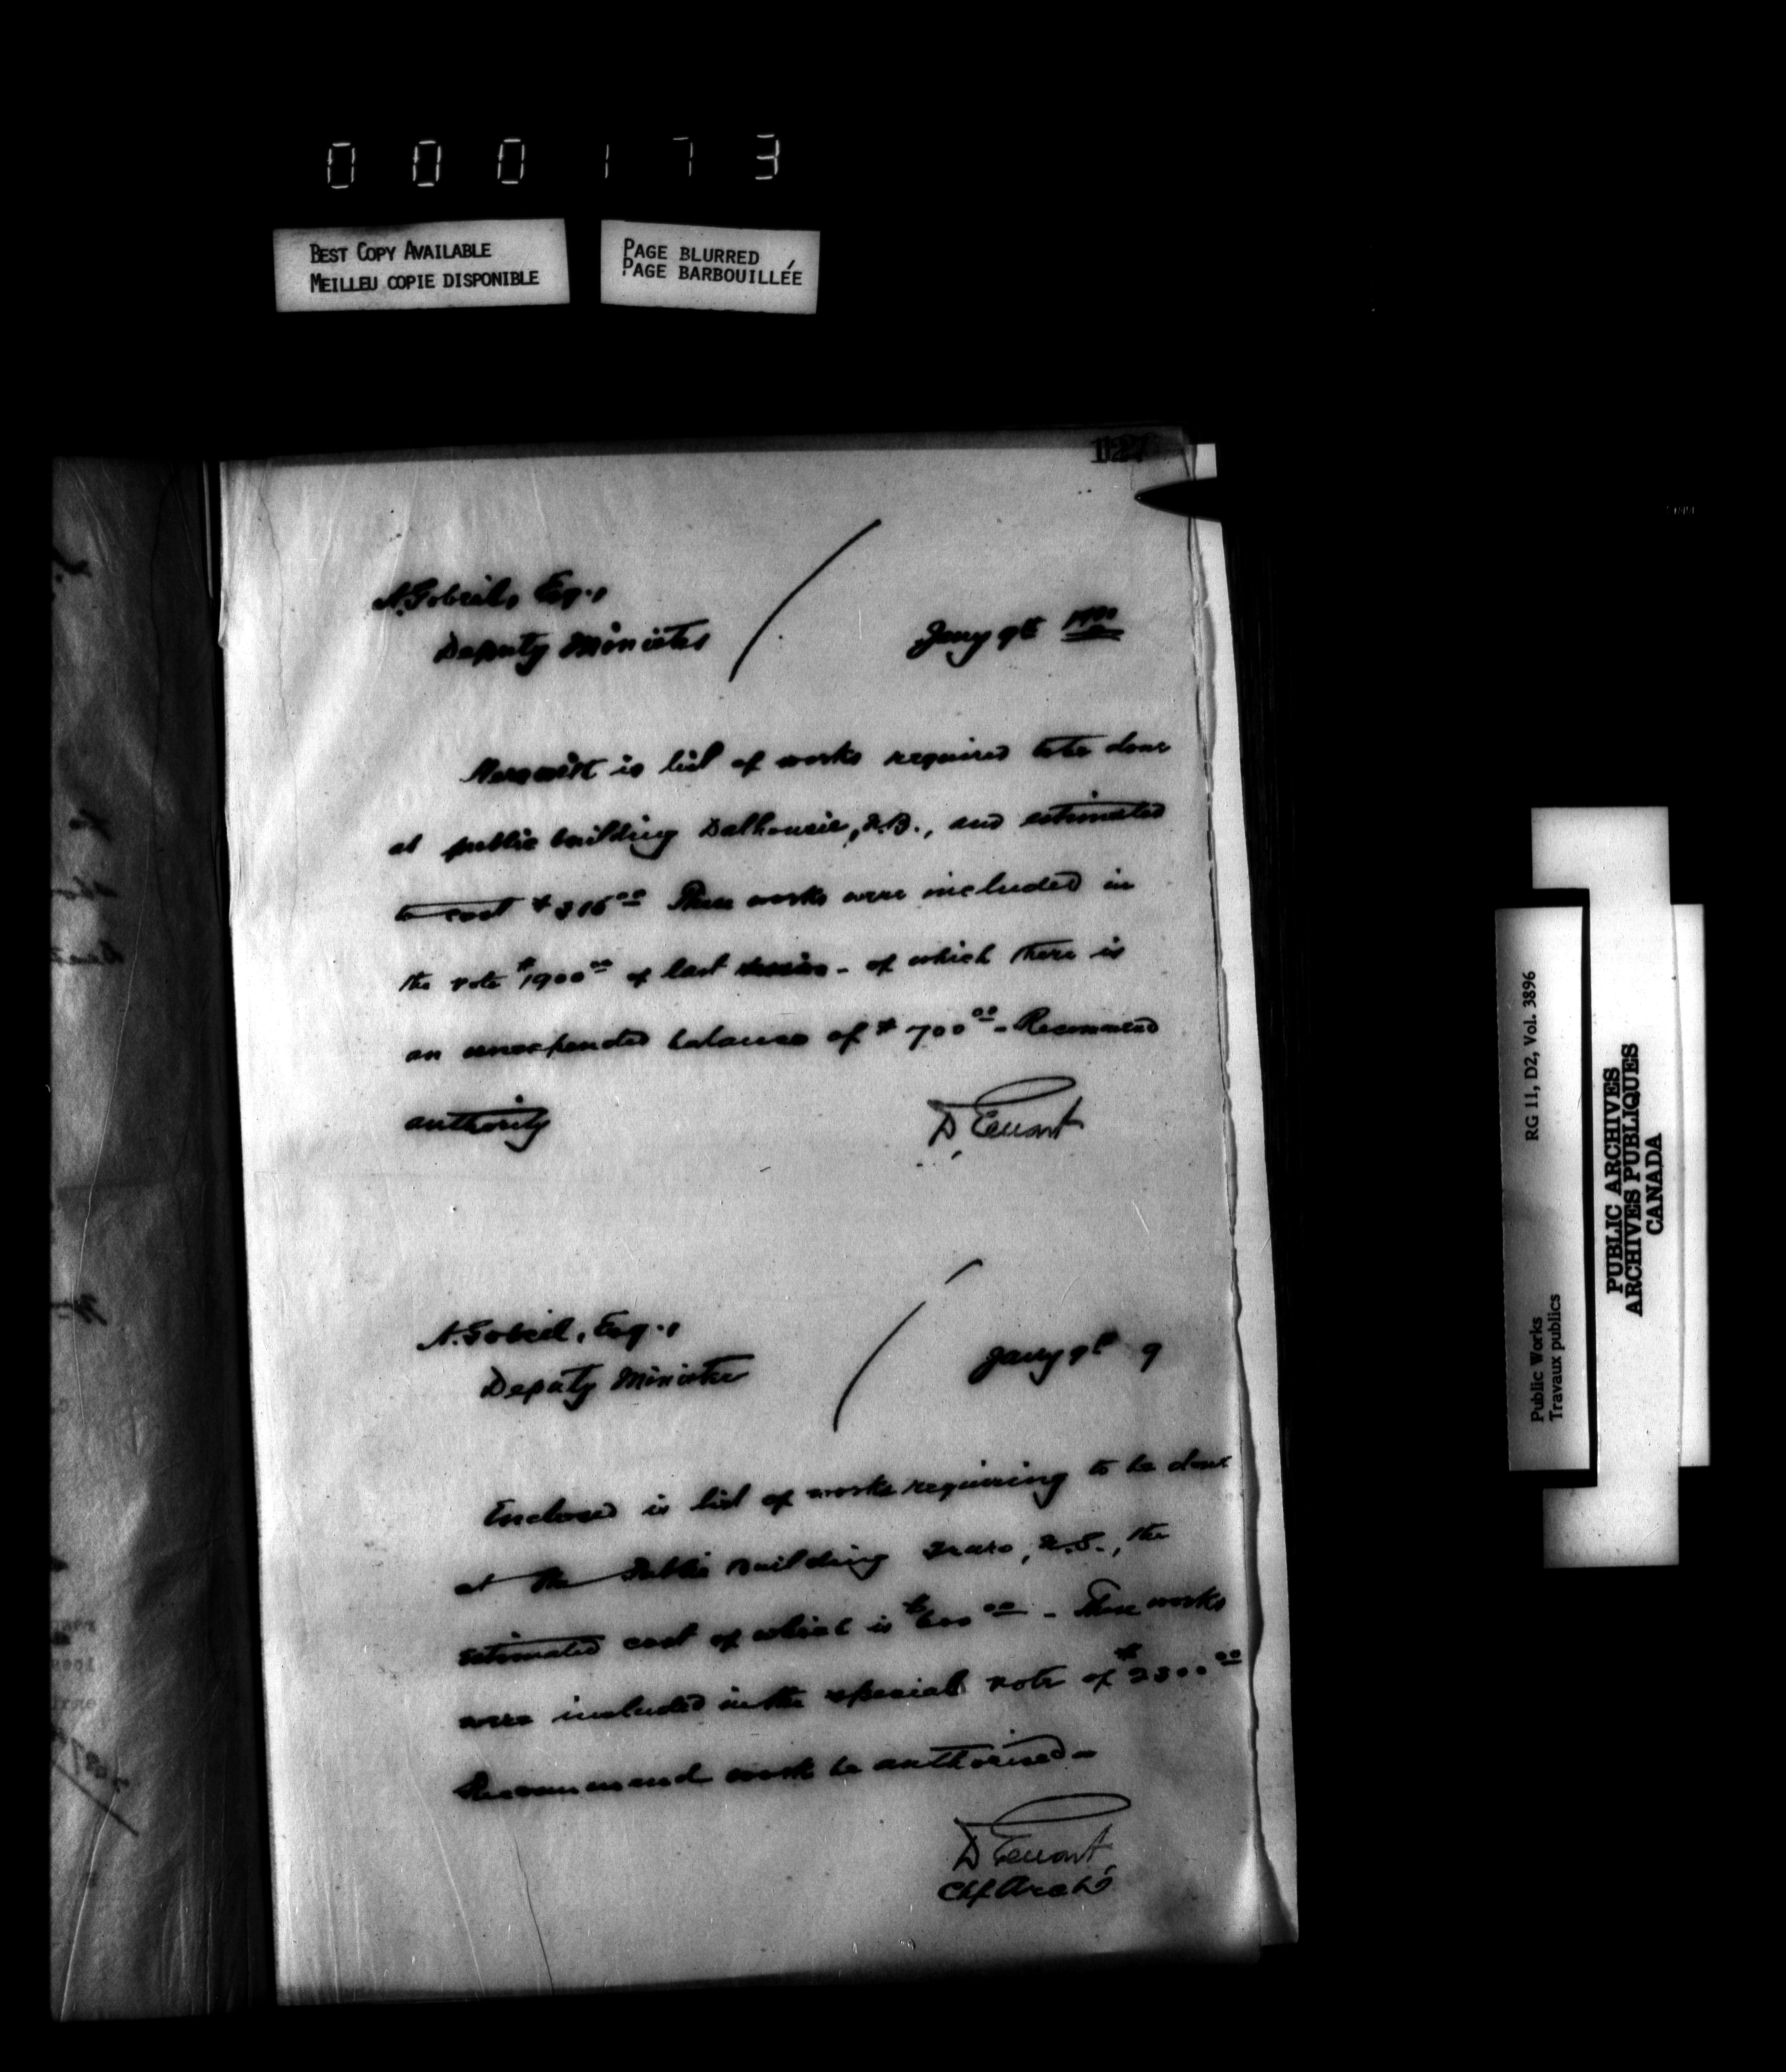 000173
BEST COPY AVAILABLE
MEILLEU COPIE DISPONIBLE
PAGE BLURRED
PAGE BARBOUILLÉE
1127
A. Gobeil, Esq.,
Deputy Minister
Jany 9th
Herewith is list of works required to be done
at public building Dalhousie, N.B., and estimated
to cost $ 316 00 These works were included in
the vote $1900 00 of last session - of which there is
an unexpended balance of $ 700 00 - Recommend
authority
D Ewart
A. Gobeil, Esq.,
Deputy Minister
Jany 9th 9
Enclosed is list of works requiring to be done
at the Public Building Truro, N.S., the
estimated cost of which is $600 00 - These works
were included in the special vote of $2300 00
Recommend work be authorised -
D Ewart
Chf Archt
Public Works
Travaux publics
RG 11, D2, Vol. 3896
PUBLIC ARCHIVES
ARCHIVES PUBLIQUES
CANADA